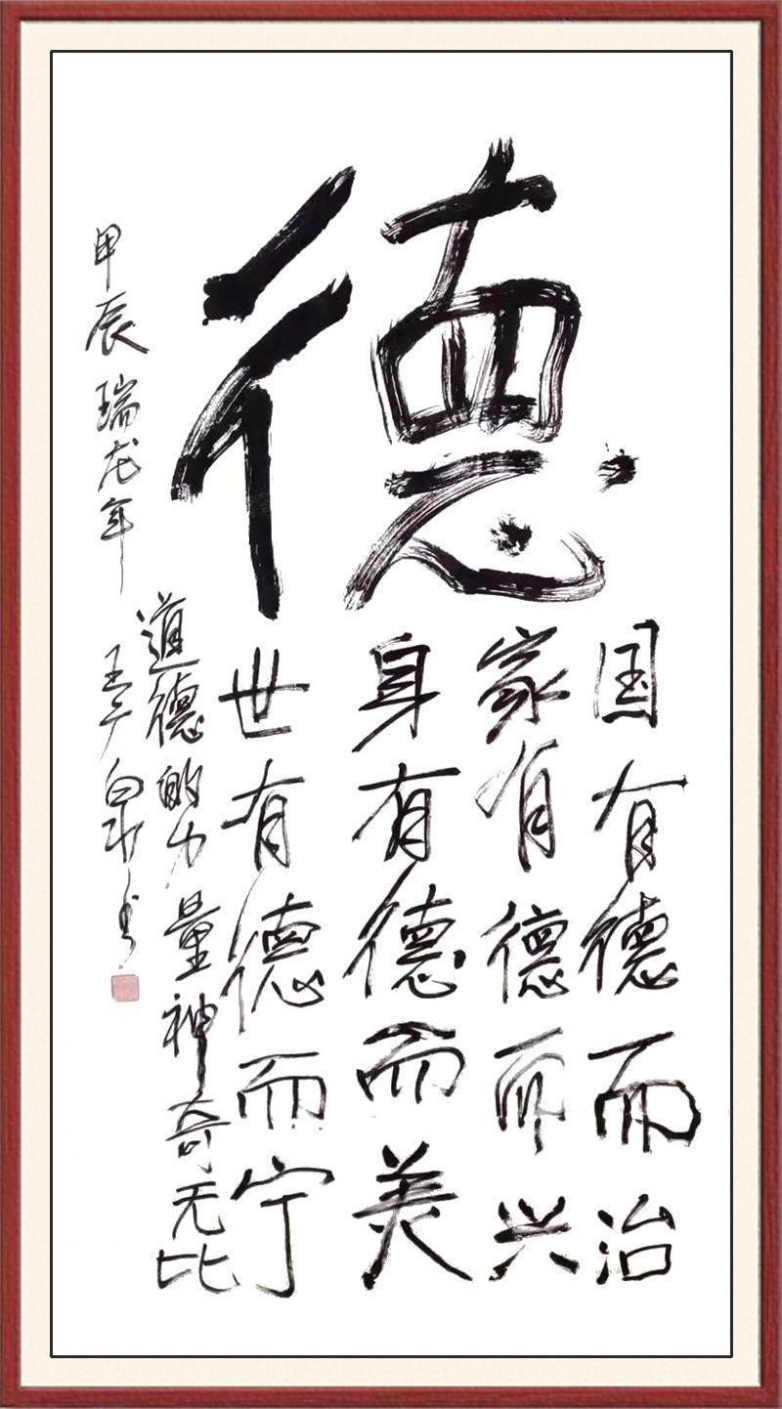 德
国有德而治
家有德而兴
身有德而美
世有德而宁
道德的力量神奇无比
甲辰瑞龙年